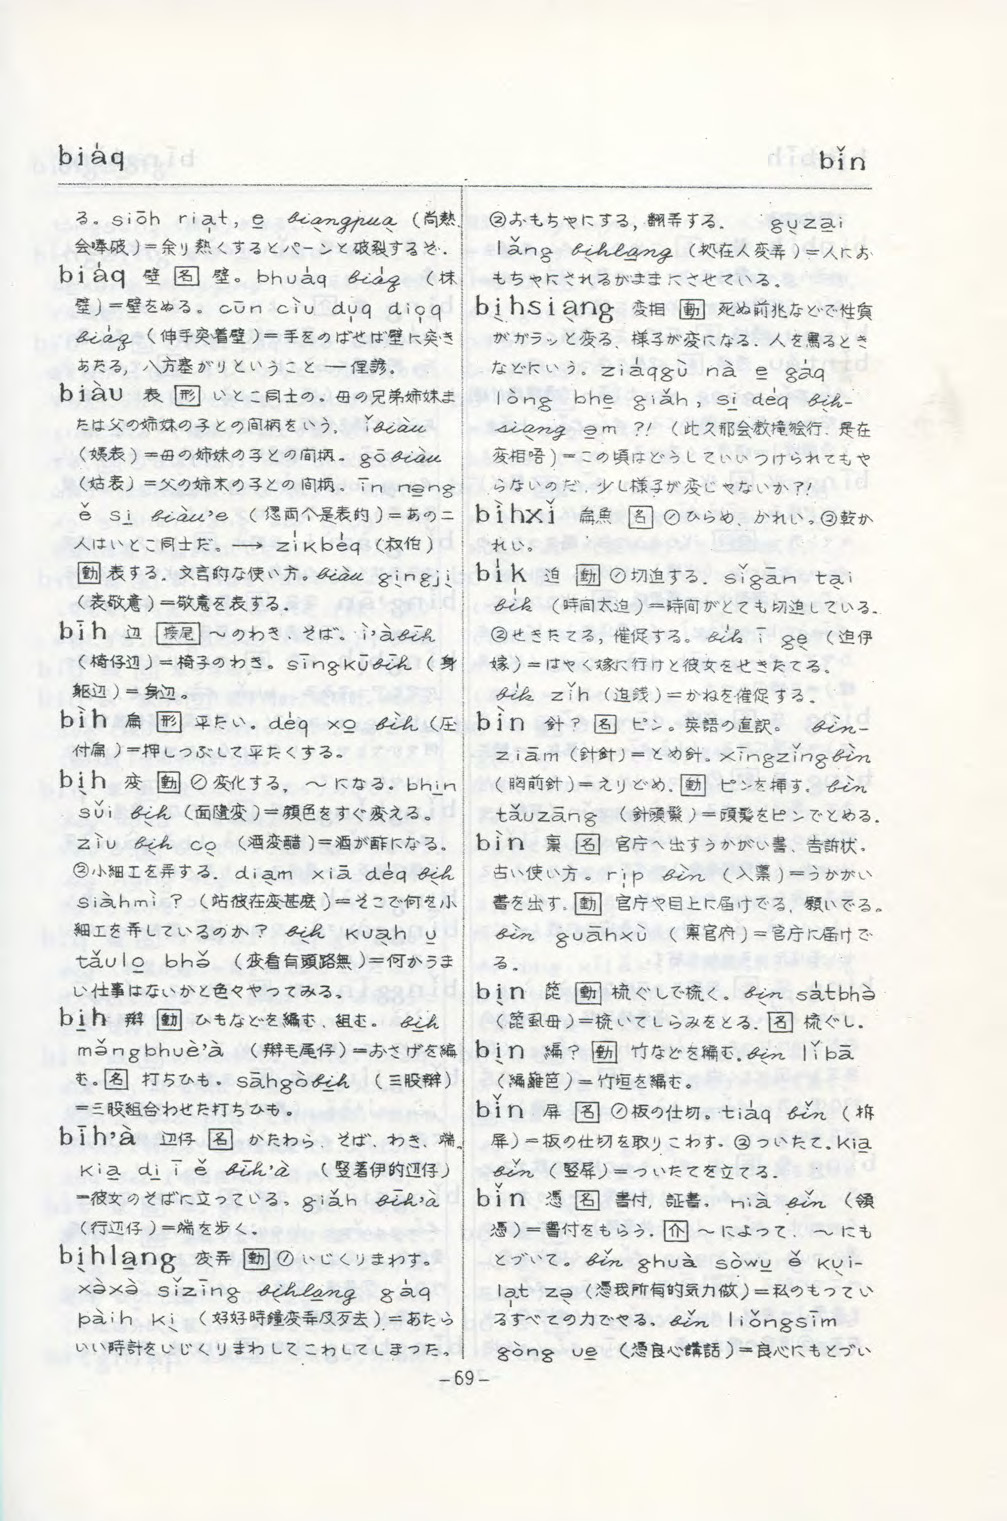 biȧq
bǐn
る。siōh riat, e biangpua (尚熱
会嗶破)=余り熱くするとパーンと破裂するぞ.
biȧq 壁 [名] 壁。bhuȧq biȧq (抹
壁)=壁をぬる。cūn ciu
biȧq (伸手突着壁)=手をのばせば壁に突き
あたる, 八方塞がりということ—俚諺。
biàu 表 [形] いとこ同士の。母の兄弟姉妹ま
たは父の姉妹の子との間柄をいう。ǐbiàu
(姨表)=母の姉妹の子との間柄。gōbiàu
(姑表)=父の姉末の子との間柄。īn nəng
ě si biàu'e (個両个是表的)=あの二
人はいとこ同士だ。→ zikbėq (叔伯)
[動] 表する. 文言的な使い方。biàu gingji
(表敬意)=敬意を表する。
bīh 辺 [接尾] ～のわき、そば。i'àbīh
(椅仔辺)=椅子のわき。sīngkūbīh (身
躯辺)=身辺。
bìh 扁 [形] 平たい。dėq xo bìh (圧
付扁)=押しつぶして平たくする。
bih 変 [動] ①変化する, ～になる。bhin
sǔi bih (面隨変)=顔色をすぐ変える。
ziu bih co (酒変醋)=酒が酢になる。
②小細工を弄する. diam xiā dėq bih
siàhmi? (站彼在変甚麼)=そこで何を小
細工を弄しているのか? bih kuah u
tǎulo bhə̌ (変看有頭路無)=何かうま
い仕事はないかと色々やってみる。
bih 辮 [動] ひもなどを編む、組む。bih
mə̌ngbhuè'à (辮毛尾仔)=おさげを編
む。[名] 打ちひも。sāhgòbih (三股辮)
=三股組合わせた打ちひも。
bīh'à 辺仔 [名] かたわら、そば、わき、端。
Kia di ī ě bīh'à (竪着伊的辺仔)
=彼女のそばに立っている。giǎh bīh'à
(行辺仔)=端を歩く。
bihlang 変弄 [動] ①いじくりまわす。
xə̀xə̀ sǐzīng bihlang gȧq
pàih ki (好好時鐘変弄及歹去)=あたら
しい時計をいじくりまわしてこわしてしまった。
②おもちゃにする, 翻弄する. guzai
lǎng bihlang (拠在人変弄)=人にお
もちゃにされるがままにさせている。
bihsiang 変相 [動] 死ぬ前兆などで性質
がガラッと変る, 様子が変になる. 人を罵るとき
などにいう。ziȧqgù nà e gȧq
lòng bhe giǎh, si dėq bih-
siang əm?! (此久那会教攏𣍐行, 是在
変相唔)=この頃はどうしていいつけられてもや
らないのだ. 少し様子が変じゃないか?!
bìhxǐ 扁魚 [名] ①ひらめ、かれい。②乾か
れい。
bik 迫 [動] ①切迫する. sǐgān tai
bik (時間太迫)=時間がとても切迫している。
②せきたてる, 催促する。bik ī ge (迫伊
嫁)=はやく嫁に行けと彼女をせきたてる。
bik zǐh (迫銭)=かねを催促する。
bìn 針? [名] ピン。英語の直訳。bìn-
ziām (針針)=とめ針。xīngzǐngbìn
(胸前針)=えりどめ. [動] ピンを挿す. bìn
tǎuzāng (針頭鬃)=頭髪をピンでとめる.
bìn 稟 [名] 官庁へ出すうかがい書、告訴状。
古い使い方。rip bìn (入稟)=うかがい
書を出す. [動] 官庁や目上に届けでる, 願いでる。
bìn guāhxù (稟官府)=官庁に届けで
る。
bin 箆 [動] 梳ぐしで梳く。bin sȧtbhə̀
(箆虱母)=梳いてしらみをとる. [名] 梳ぐし。
bin 編? [動] 竹などを編む. bin lǐbā
(編籬笆)=竹垣を編む。
bǐn 屏 [名] ①板の仕切。tiȧq bǐn (拆
屏)=板の仕切を取りこわす。②ついたて. Kia
bǐn (竪屏)=ついたてを立てる。
bǐn 憑 [名] 書付, 証書。nià bǐn (領
憑)=書付をもらう。[介] ～によって、～にも
とづいて。bǐn ghuà sòwu ě Kui-
lat zə (憑我所有的気力做)=私のもってい
るすべての力でやる。bǐn liǒngsim
gòng ue (憑良心講話)=良心にもとづい
-69-